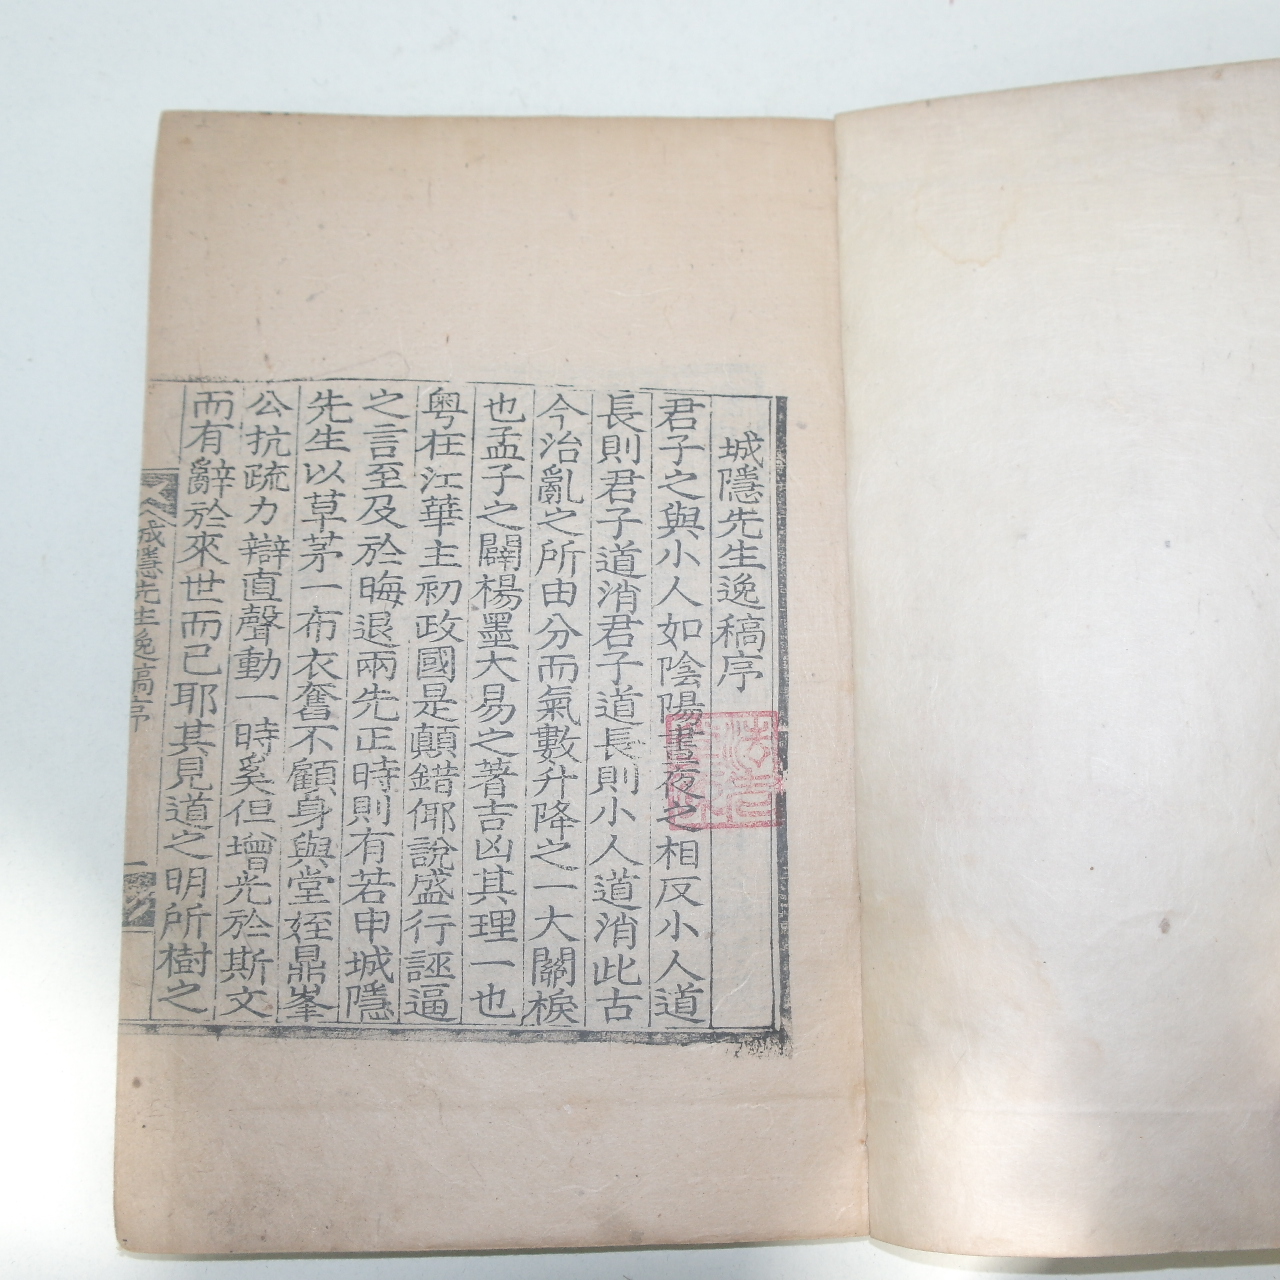 城隱先生逸稿序
君子之與小人如陰陽晝夜之相反小人道
長則君子道消君子道長則小人道消此古
今治亂之所由分而氣數升降之一大關棙
也孟子之闢楊墨大易之著吉凶其理一也
粤在江華主初政國是顚錯倻說盛行誣逼
之言至及於晦退兩先正時則有若申城隱
先生以草茅一布衣奮不顧身與堂姪鼎峯
公抗疏力辯直聲動一時奚但增光於斯文
而有辭於來世而已耶其見道之明所樹之
城隱先生逸稿序
一